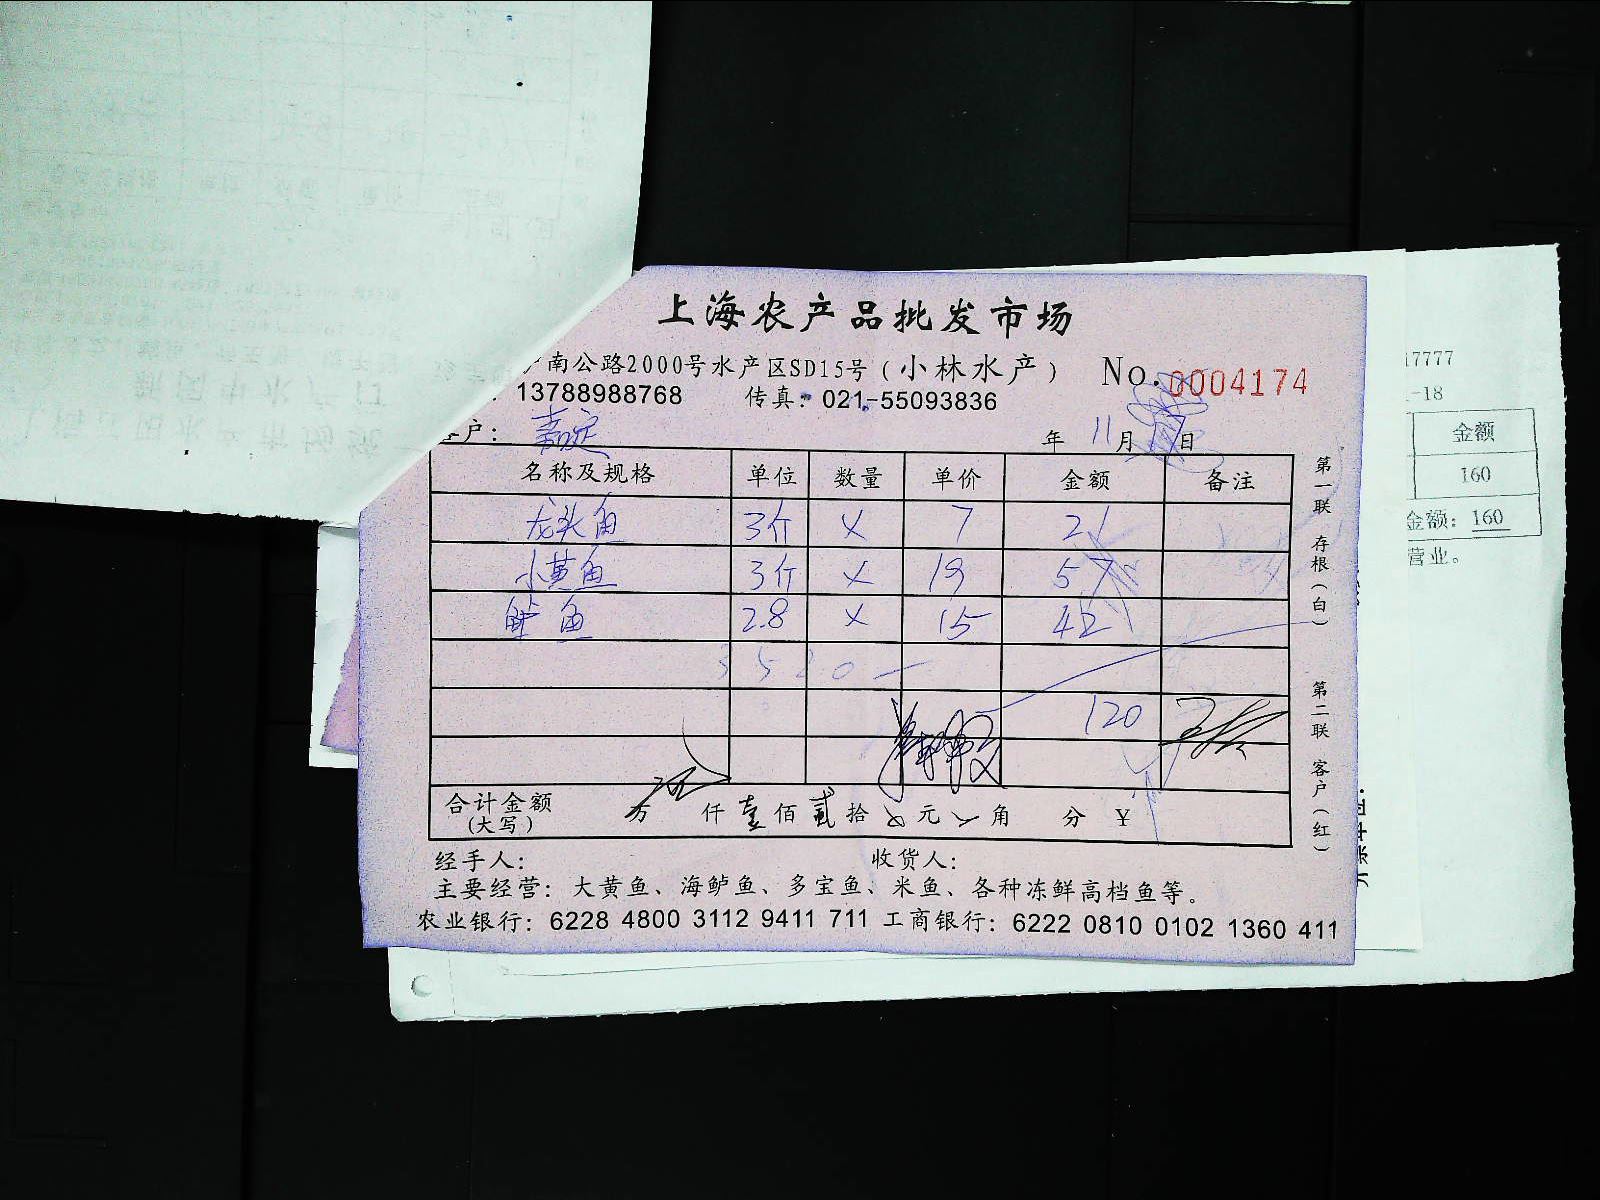 上海农产品批发市场
南公路2000号水产区SD15号(小林水产) No.0004174
13788988768 传真:021-55093836
客户: 嘉定 年 11月 日
名称及规格 单位 数量 单价 金额 备注
龙头鱼 3斤 × 7 21
小黄鱼 3斤 × 19 57
鲈鱼 2.8 × 15 42
3520
120
合计金额 万 仟壹佰贰拾 元 角 分 ¥
(大写)
经手人: 收货人:
主要经营: 大黄鱼、海鲈鱼、多宝鱼、米鱼、各种冻鲜高档鱼等。
农业银行: 6228 4800 3112 9411 711 工商银行: 6222 0810 0102 1360 411
第一联 存根(白)
第二联 客户(红)
17777
-18
金额
160
金额: 160
营业。